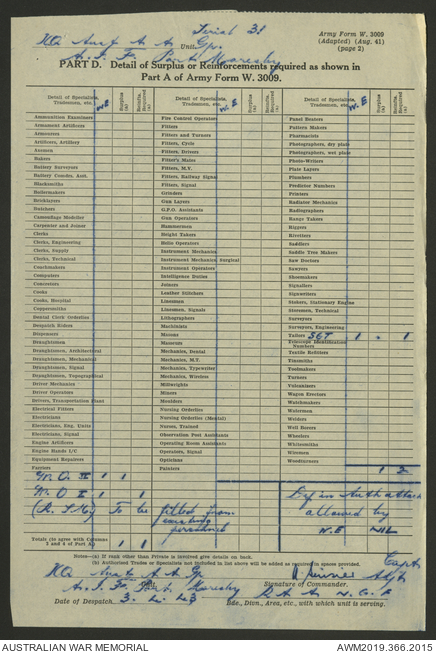 Serial 31
Army Form W. 3009
(Adapted) (Aug. 41)
(page 2)
HQ Aust A A Gp. Unit
A. I. F. Port Moresby
PART D. Detail of Surplus or Reinforcements required as shown in
Part A of Army Form W. 3009.
Detail of Specialists, Tradesmen, etc. W.E Surplus (a) Reinfts. Required (a)
Ammunition Examiners
Armament Artificers
Armourers
Artificers, Artillery
Axemen
Bakers
Battery Surveyors
Battery Comdrs. Asst.
Blacksmiths
Boilermakers
Bricklayers
Butchers
Camouflage Modeller
Carpenter and Joiner
Clerks
Clerks, Engineering
Clerks, Supply
Clerks, Technical
Coachmakers
Computers
Concretors
Cooks
Cooks, Hospital
Coppersmiths
Dental Clerk Orderlies
Despatch Riders
Dispensers
Draughtsmen
Draughtsmen, Architectural
Draughtsmen, Mechanical
Draughtsmen, Signal
Draughtsmen, Topographical
Driver Mechanics
Driver Operators
Drivers, Transportation Plant
Electrical Fitters
Electricians
Electricians, Eng. Units
Electricians, Signal
Engine Artificers
Engine Hands I/C
Equipment Repairers
Farriers
W. O. II 1 1
W O I 1 1
(R. S. M.) To be filled from
existing
personnel
Totals (to agree with Columns 3 and 4 of Part A.) 1 1
Detail of Specialists, Tradesmen, etc. W.E Surplus (a) Reinfts. Required (a)
Fire Control Operators
Fitters
Fitters and Turners
Fitters, Cycle
Fitters, Drivers
Fitter's Mates
Fitters, M.V.
Fitters, Railway Signal
Fitters, Signal
Grinders
Gun Layers
G.P.O. Assistants
Gun Operators
Hammermen
Height Takers
Helio Operators
Instrument Mechanics
Instrument Mechanics, Surgical
Instrument Operators
Intelligence Duties
Joiners
Leather Stitchers
Linesmen
Linesmen, Signals
Lithographers
Machinists
Masons
Masseurs
Mechanics, Dental
Mechanics, M.T.
Mechanics, Typewriter
Mechanics, Wireless
Millwrights
Miners
Moulders
Nursing Orderlies
Nursing Orderlies (Mental)
Nurses, Trained
Observation Post Assistants
Operating Room Assistants
Operators, Signal
Opticians
Painters
Detail of Specialists, Tradesmen, etc. W.E Surplus (a) Reinfts. Required (a)
Panel Beaters
Pattern Makers
Pharmacists
Photographers, dry plate
Photographers, wet plate
Photo-Writers
Plate Layers
Plumbers
Predictor Numbers
Printers
Radiator Mechanics
Radiographers
Range Takers
Riggers
Rivetters
Saddlers
Saddle Tree Makers
Saw Doctors
Sawyers
Shoemakers
Signallers
Signwriters
Stokers, Stationary Engine
Storemen, Technical
Surveyors
Surveyors, Engineering
Tailors SGT 1 1
Telescope Identification Numbers
Textile Refitters
Tinsmiths
Toolmakers
Turners
Vulcanizers
Wagon Erectors
Watchmakers
Watermen
Welders
Well Borers
Wheelers
Whitesmiths
Wiremen
Woodturners
1 2
allowed by
W.E NIL
Notes—(a) If rank other than Private is involved give details on back.
(b) Authorised Trades or Specialists not included in list above will be added as required in spaces provided.
HQ Aust A A Gp Unit
A. I. F. Port Moresby
Date of Despatch 3.
Capt
Adjt
Signature of Commander.
Bde., Divn., Area, etc., with which unit is serving.
AUSTRALIAN WAR MEMORIAL
AWM2019.366.2015